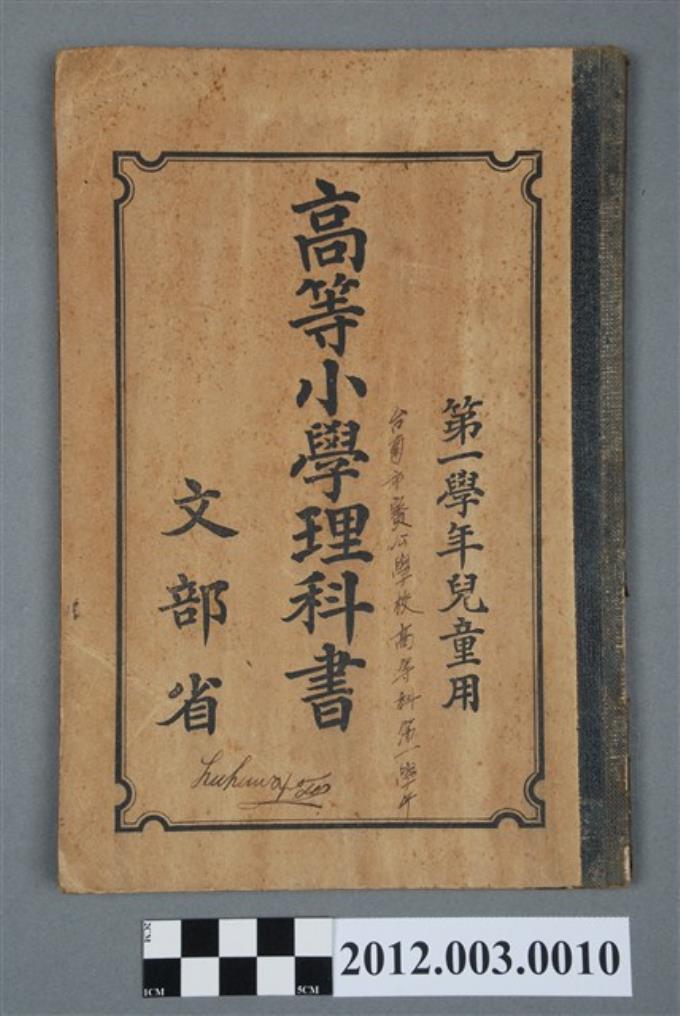 第一學年兒童用
台南市寶公學校高等科第一學年
高等小學理科書
文部省
2012.003.0010
2CM
1CM
5CM